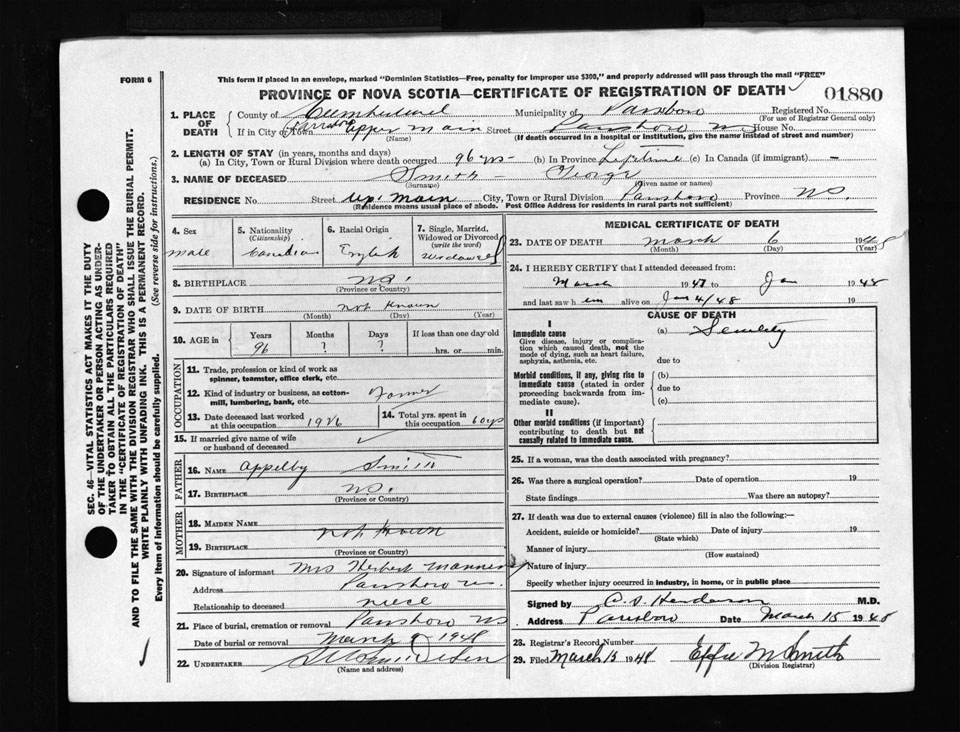 FORM 6
This form if placed in an envelope, marked "Dominion Statistics—Free, penalty for improper use $300," and properly addressed will pass through the mail "FREE"
PROVINCE OF NOVA SCOTIA—CERTIFICATE OF REGISTRATION OF DEATH
01880
1. PLACE OF DEATH
County of Cumberland Municipality of Parrsboro Registered No.
(For use of Registrar General only)
If in City or Town Upper Main Street Parrsboro NS House No.
(Name) (If death occurred in a hospital or institution, give the name instead of street and number)
2. LENGTH OF STAY (in years, months and days)
(a) In City, Town or Rural Division where death occurred 96 yrs - (b) In Province Lifetime (c) In Canada (if immigrant) -
3. NAME OF DECEASED Smith - George
(Surname) (Given name or names)
RESIDENCE No. Street Up. Main City, Town or Rural Division Parrsboro Province NS.
(Residence means usual place of abode. Post Office Address for residents in rural parts not sufficient)
4. Sex male
5. Nationality (Citizenship) Canadian
6. Racial Origin English
7. Single, Married, Widowed or Divorced (write the word) Widowed
8. BIRTHPLACE NS.
(Province or Country)
9. DATE OF BIRTH not known
(Month) (Day) (Year)
10. AGE in Years 96 Months ? Days ? If less than one day old hrs. or min.
OCCUPATION
11. Trade, profession or kind of work as spinner, teamster, office clerk, etc.
12. Kind of industry or business, as cotton-mill, lumbering, bank, etc. Farmer
13. Date deceased last worked at this occupation 1926
14. Total yrs. spent in this occupation 60 yrs
15. If married give name of wife or husband of deceased
FATHER
16. NAME Appelby Smith
17. BIRTHPLACE NS.
(Province or Country)
MOTHER
18. MAIDEN NAME
not known
19. BIRTHPLACE
(Province or Country)
20. Signature of informant Mrs Herbert
Address Parrsboro
Relationship to deceased niece
21. Place of burial, cremation or removal Parrsboro NS
Date of burial or removal March 9 1948
22. UNDERTAKER
(Name and address)
MEDICAL CERTIFICATE OF DEATH
23. DATE OF DEATH March 6
(Month) (Day) (Year)
24. I HEREBY CERTIFY that I attended deceased from:
March 1947 to Jan 1948
and last saw him alive on Jan 4/48 19
CAUSE OF DEATH
I
Immediate cause (a) Senility
Give disease, injury or complication which caused death, not the mode of dying, such as heart failure, asphyxia, asthenia, etc.
due to
Morbid conditions, if any, giving rise to immediate cause (stated in order proceeding backwards from immediate cause).
(b)
due to
(c)
II
Other morbid conditions (if important) contributing to death but not causally related to immediate cause.
25. If a woman, was the death associated with pregnancy?
26. Was there a surgical operation? Date of operation 19
State findings Was there an autopsy?
27. If death was due to external causes (violence) fill in also the following:—
Accident, suicide or homicide? Date of injury 19
(State which)
Manner of injury
(How sustained)
Nature of injury
Specify whether injury occurred in industry, in home, or in public place
Signed by Henderson M.D.
Address Parrsboro Date March 15 1948
28. Registrar's Record Number
29. Filed March 15 1948 Effie M Smith
(Division Registrar)
SEC. 46—VITAL STATISTICS ACT MAKES IT THE DUTY
OF THE UNDERTAKER OR PERSON ACTING AS UNDERTAKER
TO OBTAIN ALL THE PARTICULARS REQUIRED
IN THE "CERTIFICATE OF REGISTRATION OF DEATH"
AND TO FILE THE SAME WITH THE DIVISION REGISTRAR WHO SHALL ISSUE THE BURIAL PERMIT.
WRITE PLAINLY WITH UNFADING INK. THIS IS A PERMANENT RECORD.
Every item of information should be carefully supplied. (See reverse side for instructions.)